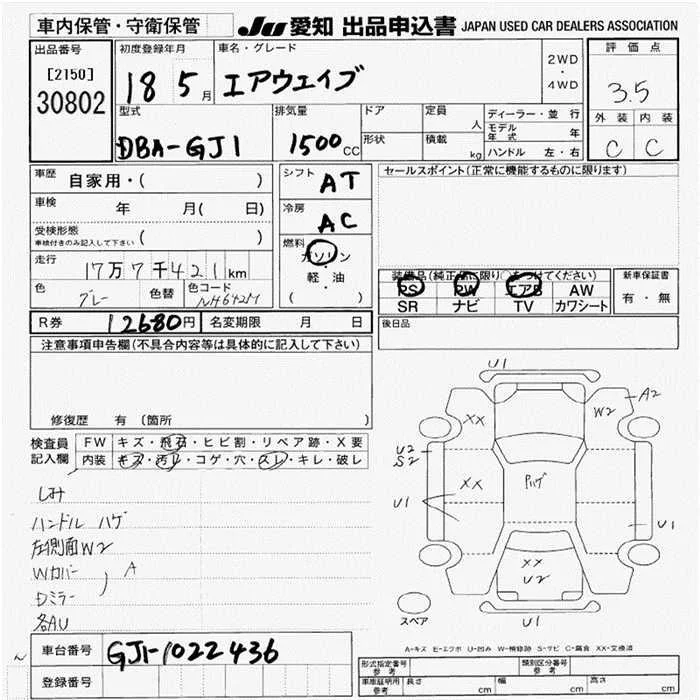 車内保管・守衛保管
JU 愛知 出品申込書 JAPAN USED CAR DEALERS ASSOCIATION
出品番号
[2150]
30802
初度登録年月
18 5月
車名・グレード
エアウェイブ
2WD
・
4WD
評価点
3.5
外装 内装
C C
型式
DBA-GJ1
排気量
1500cc
ドア
形状
定員
人
積載
kg
ディーラー・並行
モデル年式 年
ハンドル 左・右
車歴 自家用・( )
車検 年 月( 日)
受検形態
車検付きのみ記入して下さい ( )
走行 17万7千421km
色 グレー 色替 色コード NH642M
シフト AT
冷房 AC
燃料
ガソリン
・
軽・油
( )
セールスポイント(正常に機能するものに限ります)
装備品(純正品に限り○をつけてください)
PS PW エアB AW
SR ナビ TV カワシート
新車保証書
有・無
後日品
R券 12680円 名変期限 月 日
注意事項申告欄(不具合内容等は具体的に記入して下さい)
修復歴 有 (箇所 )
検査員
記入欄
FW キズ・飛石・ヒビ割・リペア跡・X要
内装 キズ・汚れ・コゲ・穴・スレ・キレ・破レ
しみ
ハンドル ハゲ
左側面W2
Wカバー
A
Dミラー
各AU
U1
A2
XX
W2
U2
S2
XX
Pハゲ
U1
U1
XX
U2
スペア
U1
A-キズ E-エクボ U-凹み W-補修跡 S-サビ C-腐食 XX-交換済
車台番号 GJ1-1022436
登録番号
形式指定番号
参考
類別区分番号
参考
車庫証明用
参考
長さ cm 幅 cm 高さ cm